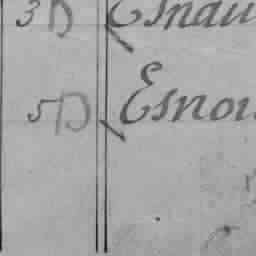 3 D Esnau
5 D Esnou